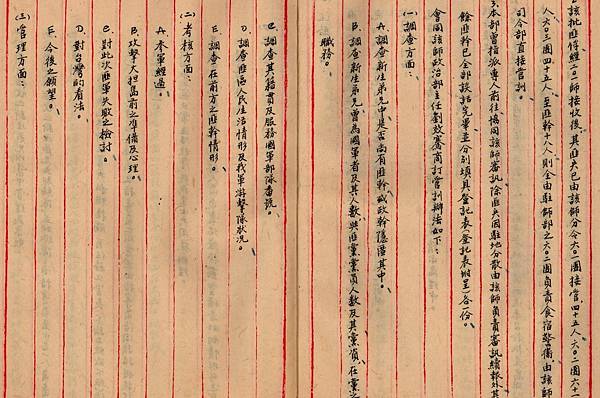 該批匪俘經二〇一師接收後其匪夫已由該師分令六〇一團接管四十五人六〇二團六十一
人六〇三團四十五人至匪幹十八人則全由駐師部之六〇二團負責食宿警備由該師
司令部直接管訓。
3.本部曾指派專人前往協同該師審訊除匪夫因駐地分散由該師負責審訊續報外其
餘匪幹已全部談話完畢並分別填具登記表(登記表附呈)各一份。
會同該師政治部主任劉效騫商訂管訓辦法如下：
(一)調查方面：
A.調查新生弟兄中是否尚有匪幹或政幹隱匿其中。
B.調查新生弟兄曾為國軍者及其人數與匪黨黨員人數及其黨資在黨之
職務。
C.調查其籍貫及服務國軍部隊番號。
D.調查匪區人民生活情形及我軍游擊隊狀況。
E.調查在前方之匪幹情形。
(二)考核方面：
A.參軍經過。
B.攻擊大担島前之準備及心理。
C.對此次匪軍失敗之檢討。
D.對台灣的看法。
E.今後之願望。
(三)管理方面：